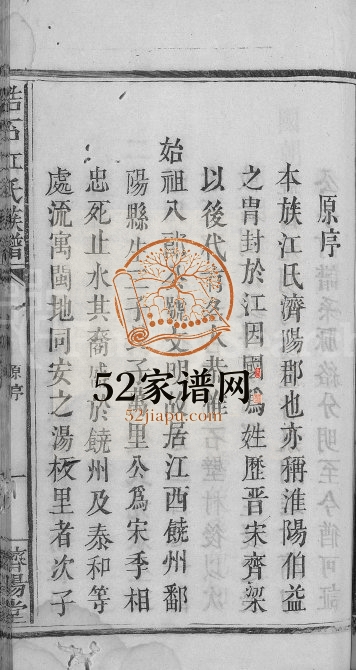 原序
本族江氏濟陽郡也亦稱淮陽伯益
之胄封於江因國爲姓歷晉宋齊梁
以後代
始祖八
居江西饒州鄱
陽縣生三子
里公爲宋季相
忠死止水其裔
於饒州及泰和等
處流寓閩地同安之湯板里者次子
江氏族譜
原序
一
濟陽堂
52家谱网
52jiapu.com